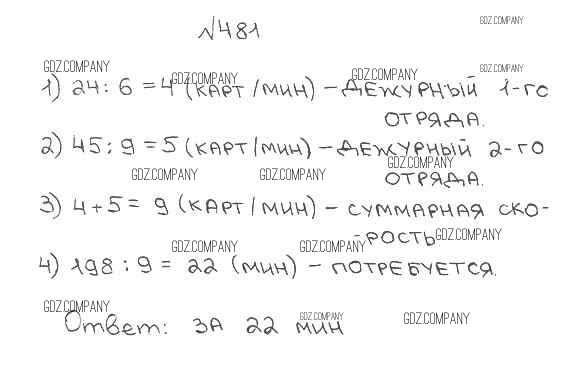 №481
GDZ.COMPANY
GDZ.COMPANY GDZ.COMPANY GDZ.COMPANY GDZ.COMPANY
1) 24 : 6 = 4 (КАРТ/МИН) – ДЕЖУРНЫЙ 1-ГО
ОТРЯДА.
2) 45 : 9 = 5 (КАРТ/МИН) – ДЕЖУРНЫЙ 2-ГО
GDZ.COMPANY
ОТРЯДА.
GDZ.COMPANY GDZ.COMPANY
3) 4 + 5 = 9 (КАРТ/МИН) – СУММАРНАЯ СКО-
-РОСТЬ GDZ.COMPANY
GDZ.COMPANY GDZ.COMPANY
4) 198 : 9 = 22 (МИН) – ПОТРЕБУЕТСЯ.
GDZ.COMPANY GDZ.COMPANY GDZ.COMPANY
Ответ: ЗА 22 МИН